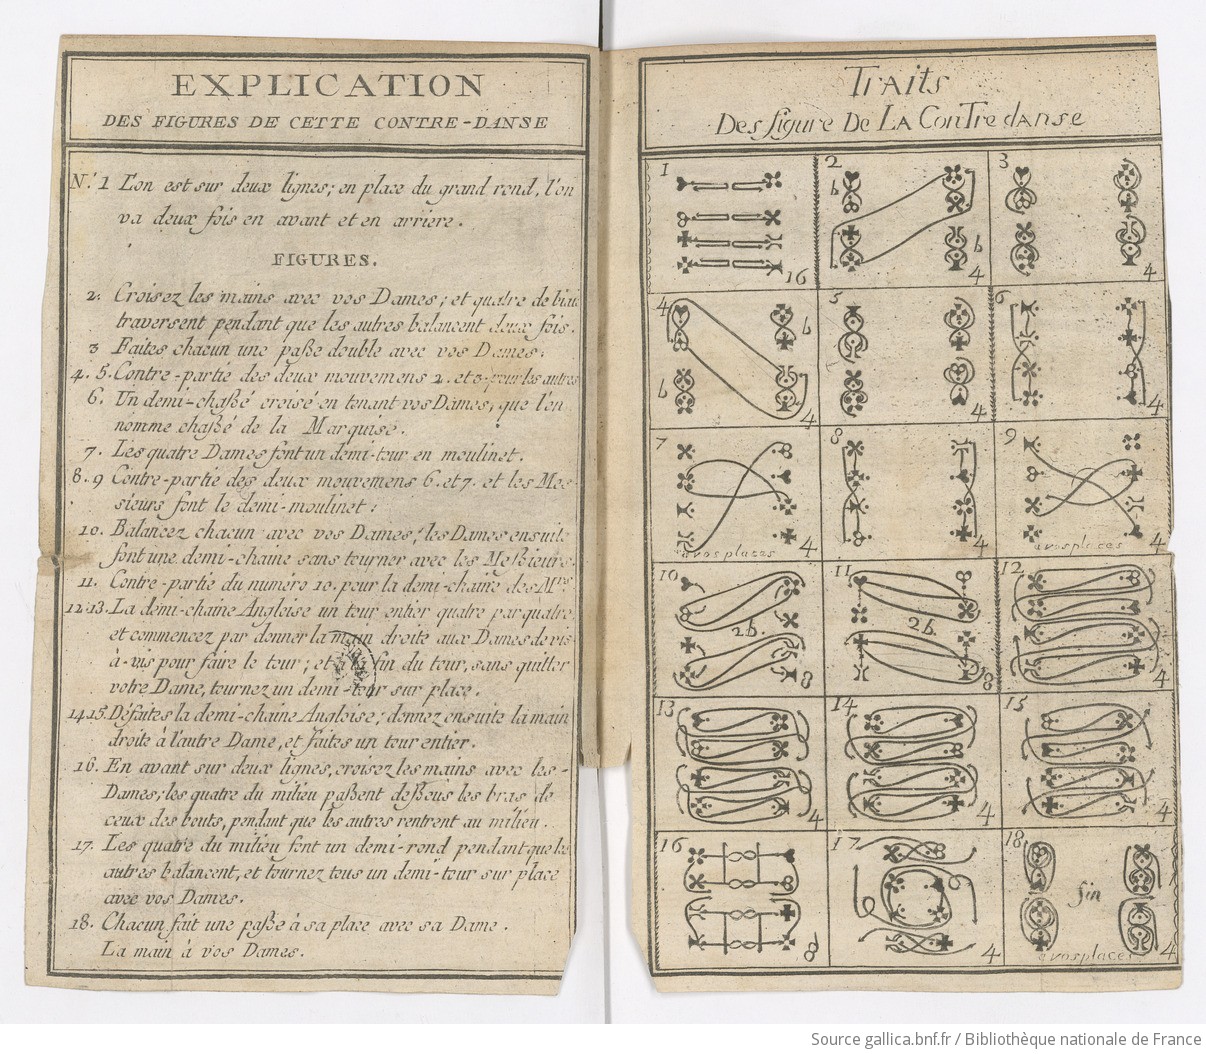 EXPLICATION
DES FIGURES DE CETTE CONTRE-DANSE
N.º 1 L'on est sur deux lignes; en place du grand rond, l'on
va deux fois en avant et en arriere.
FIGURES.
2. Croisez les mains avec vos Dames; et quatre de biai
traversent pendant que les autres balancent deux fois.
3 Faites chacun une paße double avec vos Dames.
4. 5. Contre-partie des deux mouvemens 2. et 3. pour les autres
6. Un demi-chaßé croisé en tenant vos Dames, que l'on
nomme chaßé de la Marquise.
7. Les quatre Dames font un demi-tour en moulinet.
8. 9 Contre-partie des deux mouvemens 6. et 7. et les Mes-
sieurs font le demi-moulinet.
10. Balancez chacun avec vos Dames; les Dames ensuite
font une demi-chaine sans tourner avec les Meßieurs.
11. Contre-partie du numéro 10. pour la demi-chaine des M.rs
12.13. La demi-chaine Angloise un tour entier quatre par quatre,
et commencez par donner la main droite aux Dames de vis-
à-vis pour faire le tour; et à la fin du tour, sans quitter
votre Dame, tournez un demi-tour sur place.
14.15. Défaites la demi-chaine Angloise; donnez ensuite la main
droite à l'autre Dame, et faites un tour entier.
16. En avant sur deux lignes, croisez les mains avec les
Dames; les quatre du milieu paßent deßous les bras de
ceux des bouts, pendant que les autres rentrent au milieu.
17. Les quatre du milieu font un demi-rond pendant que les
autres balancent, et tournez tous un demi-tour sur place
avec vos Dames.
18. Chacun fait une paße à sa place avec sa Dame.
La main à vos Dames.
Traits
Des figure De LA ConTre danse
1 16
2 b b 4
3 4
4 b b 4
5 4
6 4
7 a vos places 4
8 4
9 a vos places 4
10 2b. 8
11 2b. 8
12 4
13 4
14 4
15 4
16 8
17 4
18 fin a vos places 4
Source gallica.bnf.fr / Bibliothèque nationale de France